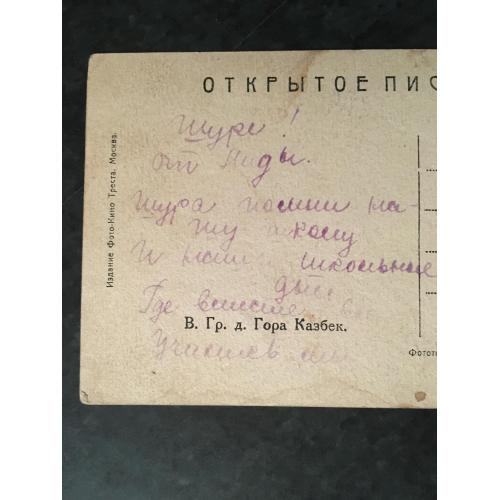 ОТКРЫТОЕ ПИС
Шуре!
от Лиды.
Шура помни на-
шу школу
И наши школьные
дни
Где вместе
В. Гр. д. Гора Казбек.
Учились мы
Издание Фото-Кино Треста. Москва.
Фотот